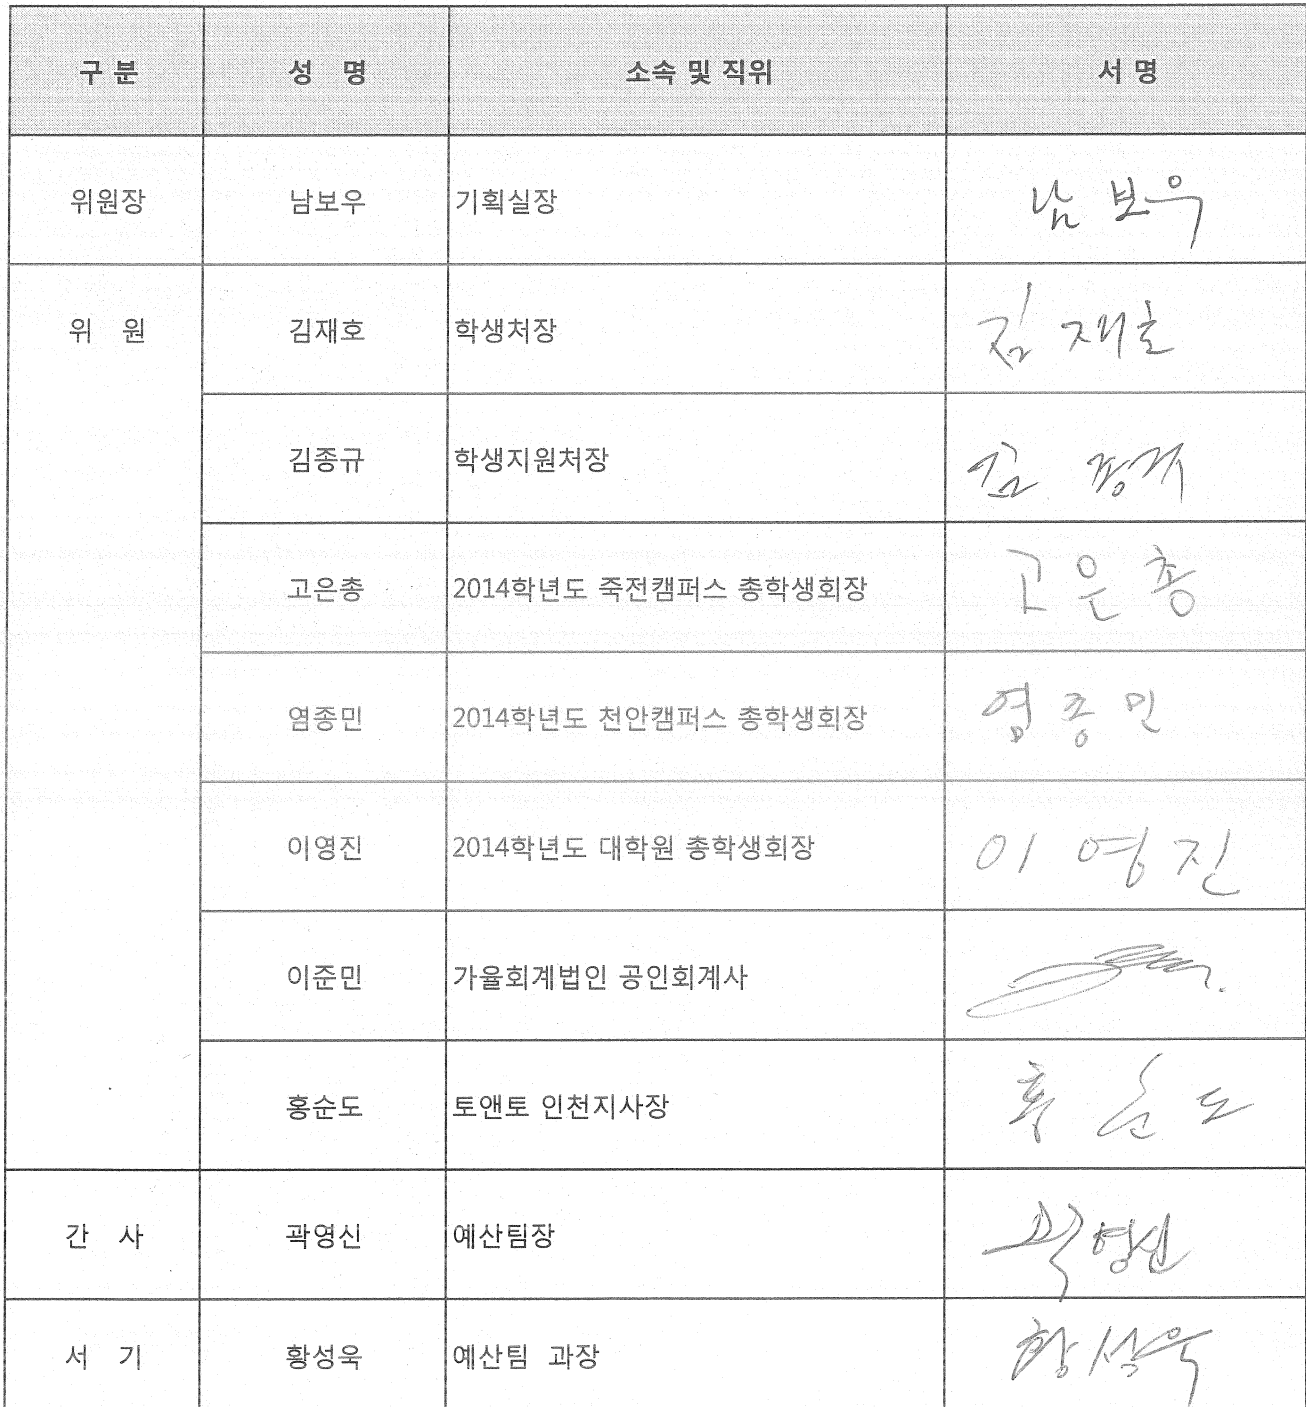 구 분 성 명 소속 및 직위 서 명
위원장 남보우 기획실장 남 보우
위 원 김재호 학생처장 김 재호
김종규 학생지원처장 김 종규
고은총 2014학년도 죽전캠퍼스 총학생회장 고은총
염종민 2014학년도 천안캠퍼스 총학생회장 염종민
이영진 2014학년도 대학원 총학생회장 이영진
이준민 가율회계법인 공인회계사
홍순도 토앤토 인천지사장 홍순도
간 사 곽영신 예산팀장 곽영신
서 기 황성욱 예산팀 과장 황성욱